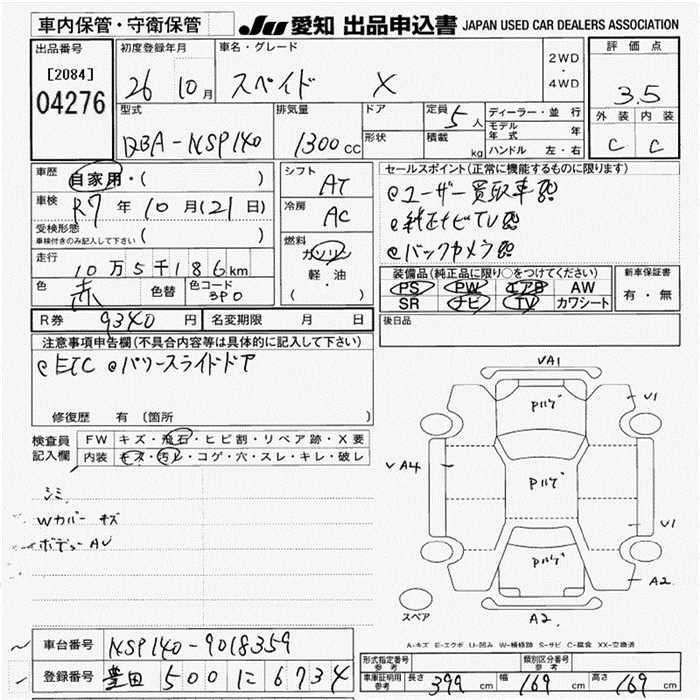 車内保管・守衛保管
JU 愛知 出品申込書 JAPAN USED CAR DEALERS ASSOCIATION
出品番号 初度登録年月 車名・グレード 2WD ・ 4WD 評価点
[2084] 26 10月 スペイド X 3.5
04276
型式 排気量 ドア 定員 5人 ディーラー・並行 外装 内装
DBA-NSP140 1300CC 形状 積載 kg モデル年式 年 C C
ハンドル 左・右
車歴 自家用・( ) シフト AT セールスポイント(正常に機能するものに限ります)
車検 R7年10月(21日) 冷房 AC ユーザー買取車
受検形態 ( ) 純正ナビTV
車検付きのみ記入して下さい 燃料 ガソリン バックカメラ
走行 10万5千186km 軽・油 装備品(純正品に限り○をつけてください) 新車保証書
色 赤 色替 色コード 3P0 ( ・ ) PS PW エアB AW 有・無
SR ナビ TV カワシート
R券 9340円 名変期限 月 日 後日品
注意事項申告欄(不具合内容等は具体的に記入して下さい)
ETC パワースライドドア
修復歴 有 (箇所 )
検査員 FW キズ・飛石・ヒビ割・リペア跡・X要
記入欄 内装 キズ・汚レ・コゲ・穴・スレ・キレ・破レ
シミ
Wカバー キズ
ボデュー AU
VA1
Pルーフ
U1
VA4
Pルーフ
U1
Pルーフ
A2
スペア
A2
A-キズ E-エクボ U-凹み W-補修跡 S-サビ C-腐食 XX-交換済
車台番号 NSP140-9018359
登録番号 豊田 500 に 6734
形式指定番号 参考 類別区分番号 参考
車庫証明用 参考 長さ 399cm 幅 169cm 高さ 169cm